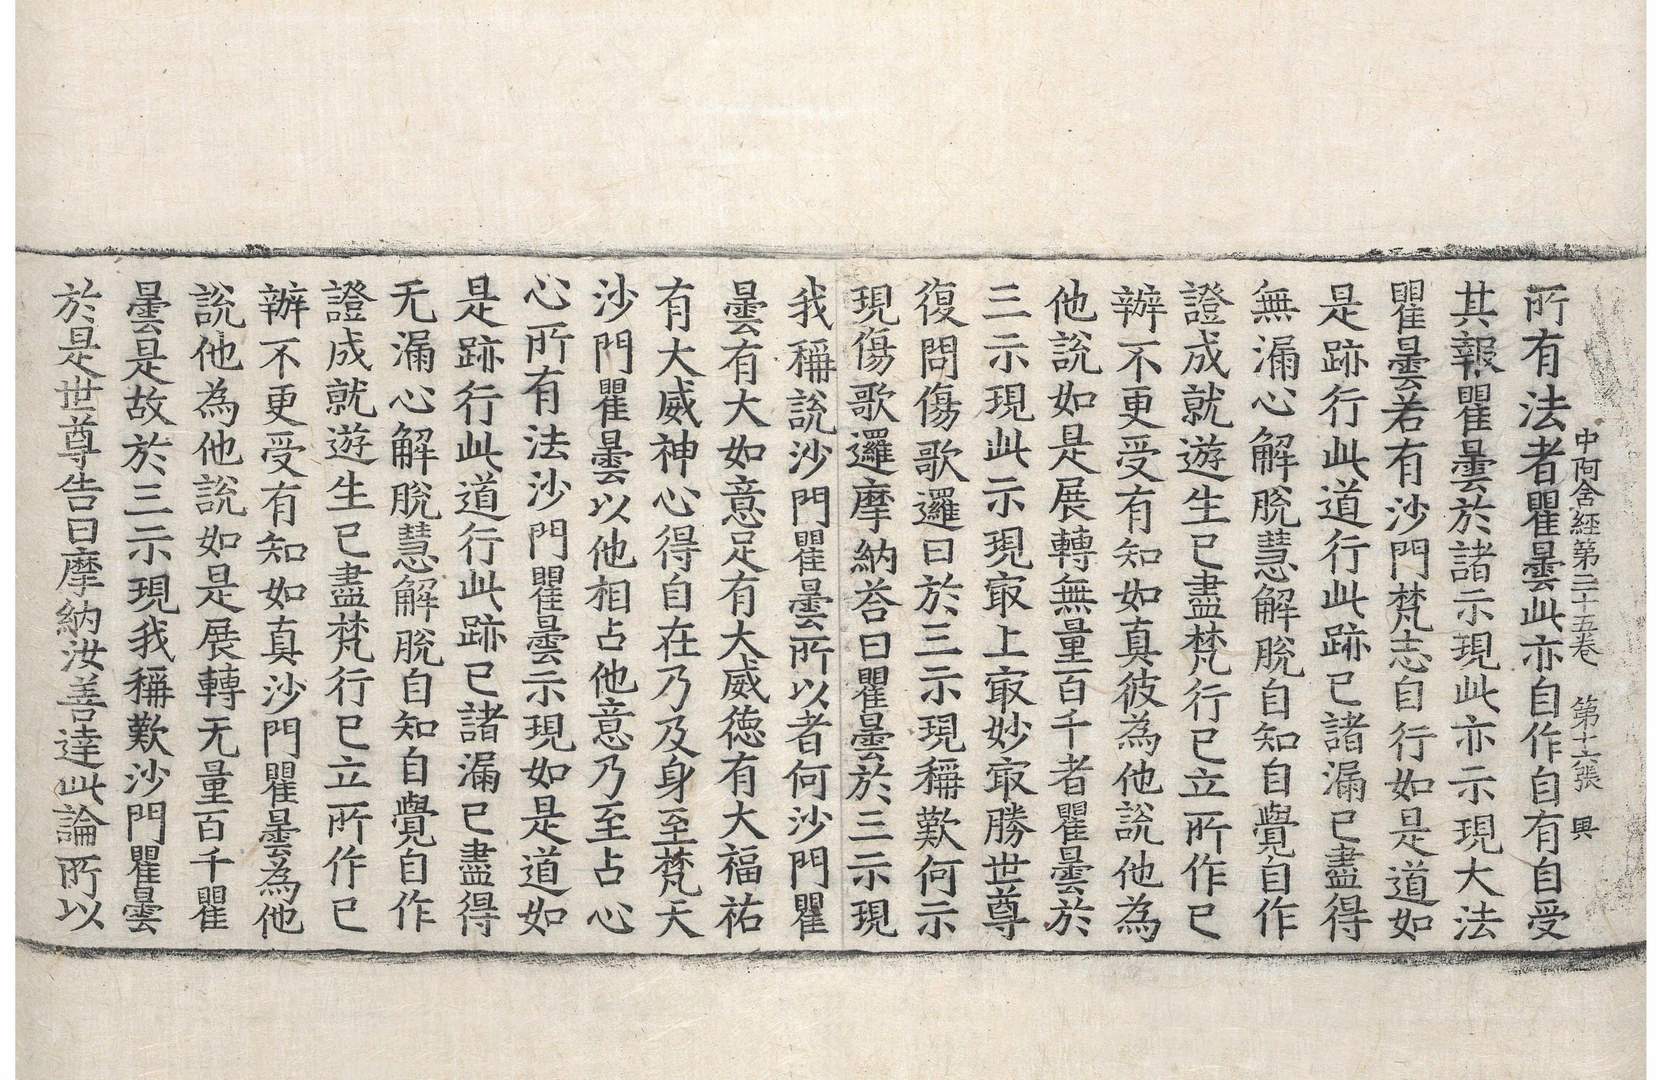 中阿含經第三十五卷　第十六張　興
所有法者瞿曇此亦自作自有自受
其報瞿曇於諸示現此亦示現大法
瞿曇若有沙門梵志自行如是道如
是跡行此道行此跡已諸漏已盡得
無漏心解脫慧解脫自知自覺自作
證成就遊生已盡梵行已立所作已
辦不更受有知如真彼為他說他為
他說如是展轉無量百千者瞿曇於
三示現此示現㝡上㝡妙㝡勝世尊
復問傷歌邏曰於三示現稱歎何示
現傷歌邏摩納荅曰瞿曇於三示現
我稱說沙門瞿曇所以者何沙門瞿
曇有大如意足有大威德有大福祐
有大威神心得自在乃及身至梵天
沙門瞿曇以他相占他意乃至占心
心所有法沙門瞿曇示現如是道如
是跡行此道行此跡已諸漏已盡得
无漏心解脫慧解脫自知自覺自作
證成就遊生已盡梵行已立所作已
辦不更受有知如真沙門瞿曇為他
說他為他說如是展轉无量百千瞿
曇是故於三示現我稱歎沙門瞿曇
於是世尊告曰摩納汝善達此論所以